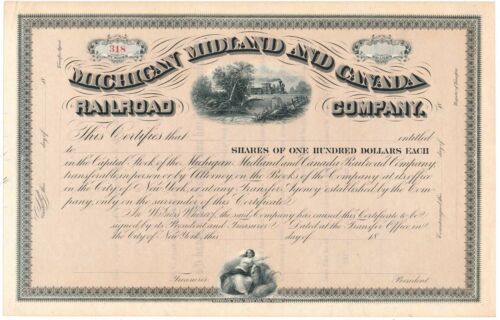 318
MICHIGAN MIDLAND AND CANADA
RAILROAD COMPANY.
This Certifies that entitled
to SHARES OF ONE HUNDRED DOLLARS EACH
in the Capital Stock of the Michigan Midland and Canada Railroad Company,
transferable in person or by Attorney, on the Books of the Company at its office
in the City of New York, or at any Transfer Agency established by the Com-
pany, only on the surrender of this Certificate.
In Witness Whereof the said Company has caused this Certificate to be
signed by its President and Treasurer. Dated at the Transfer Office in
the City of New York, this day of 18
Treasurer. President.